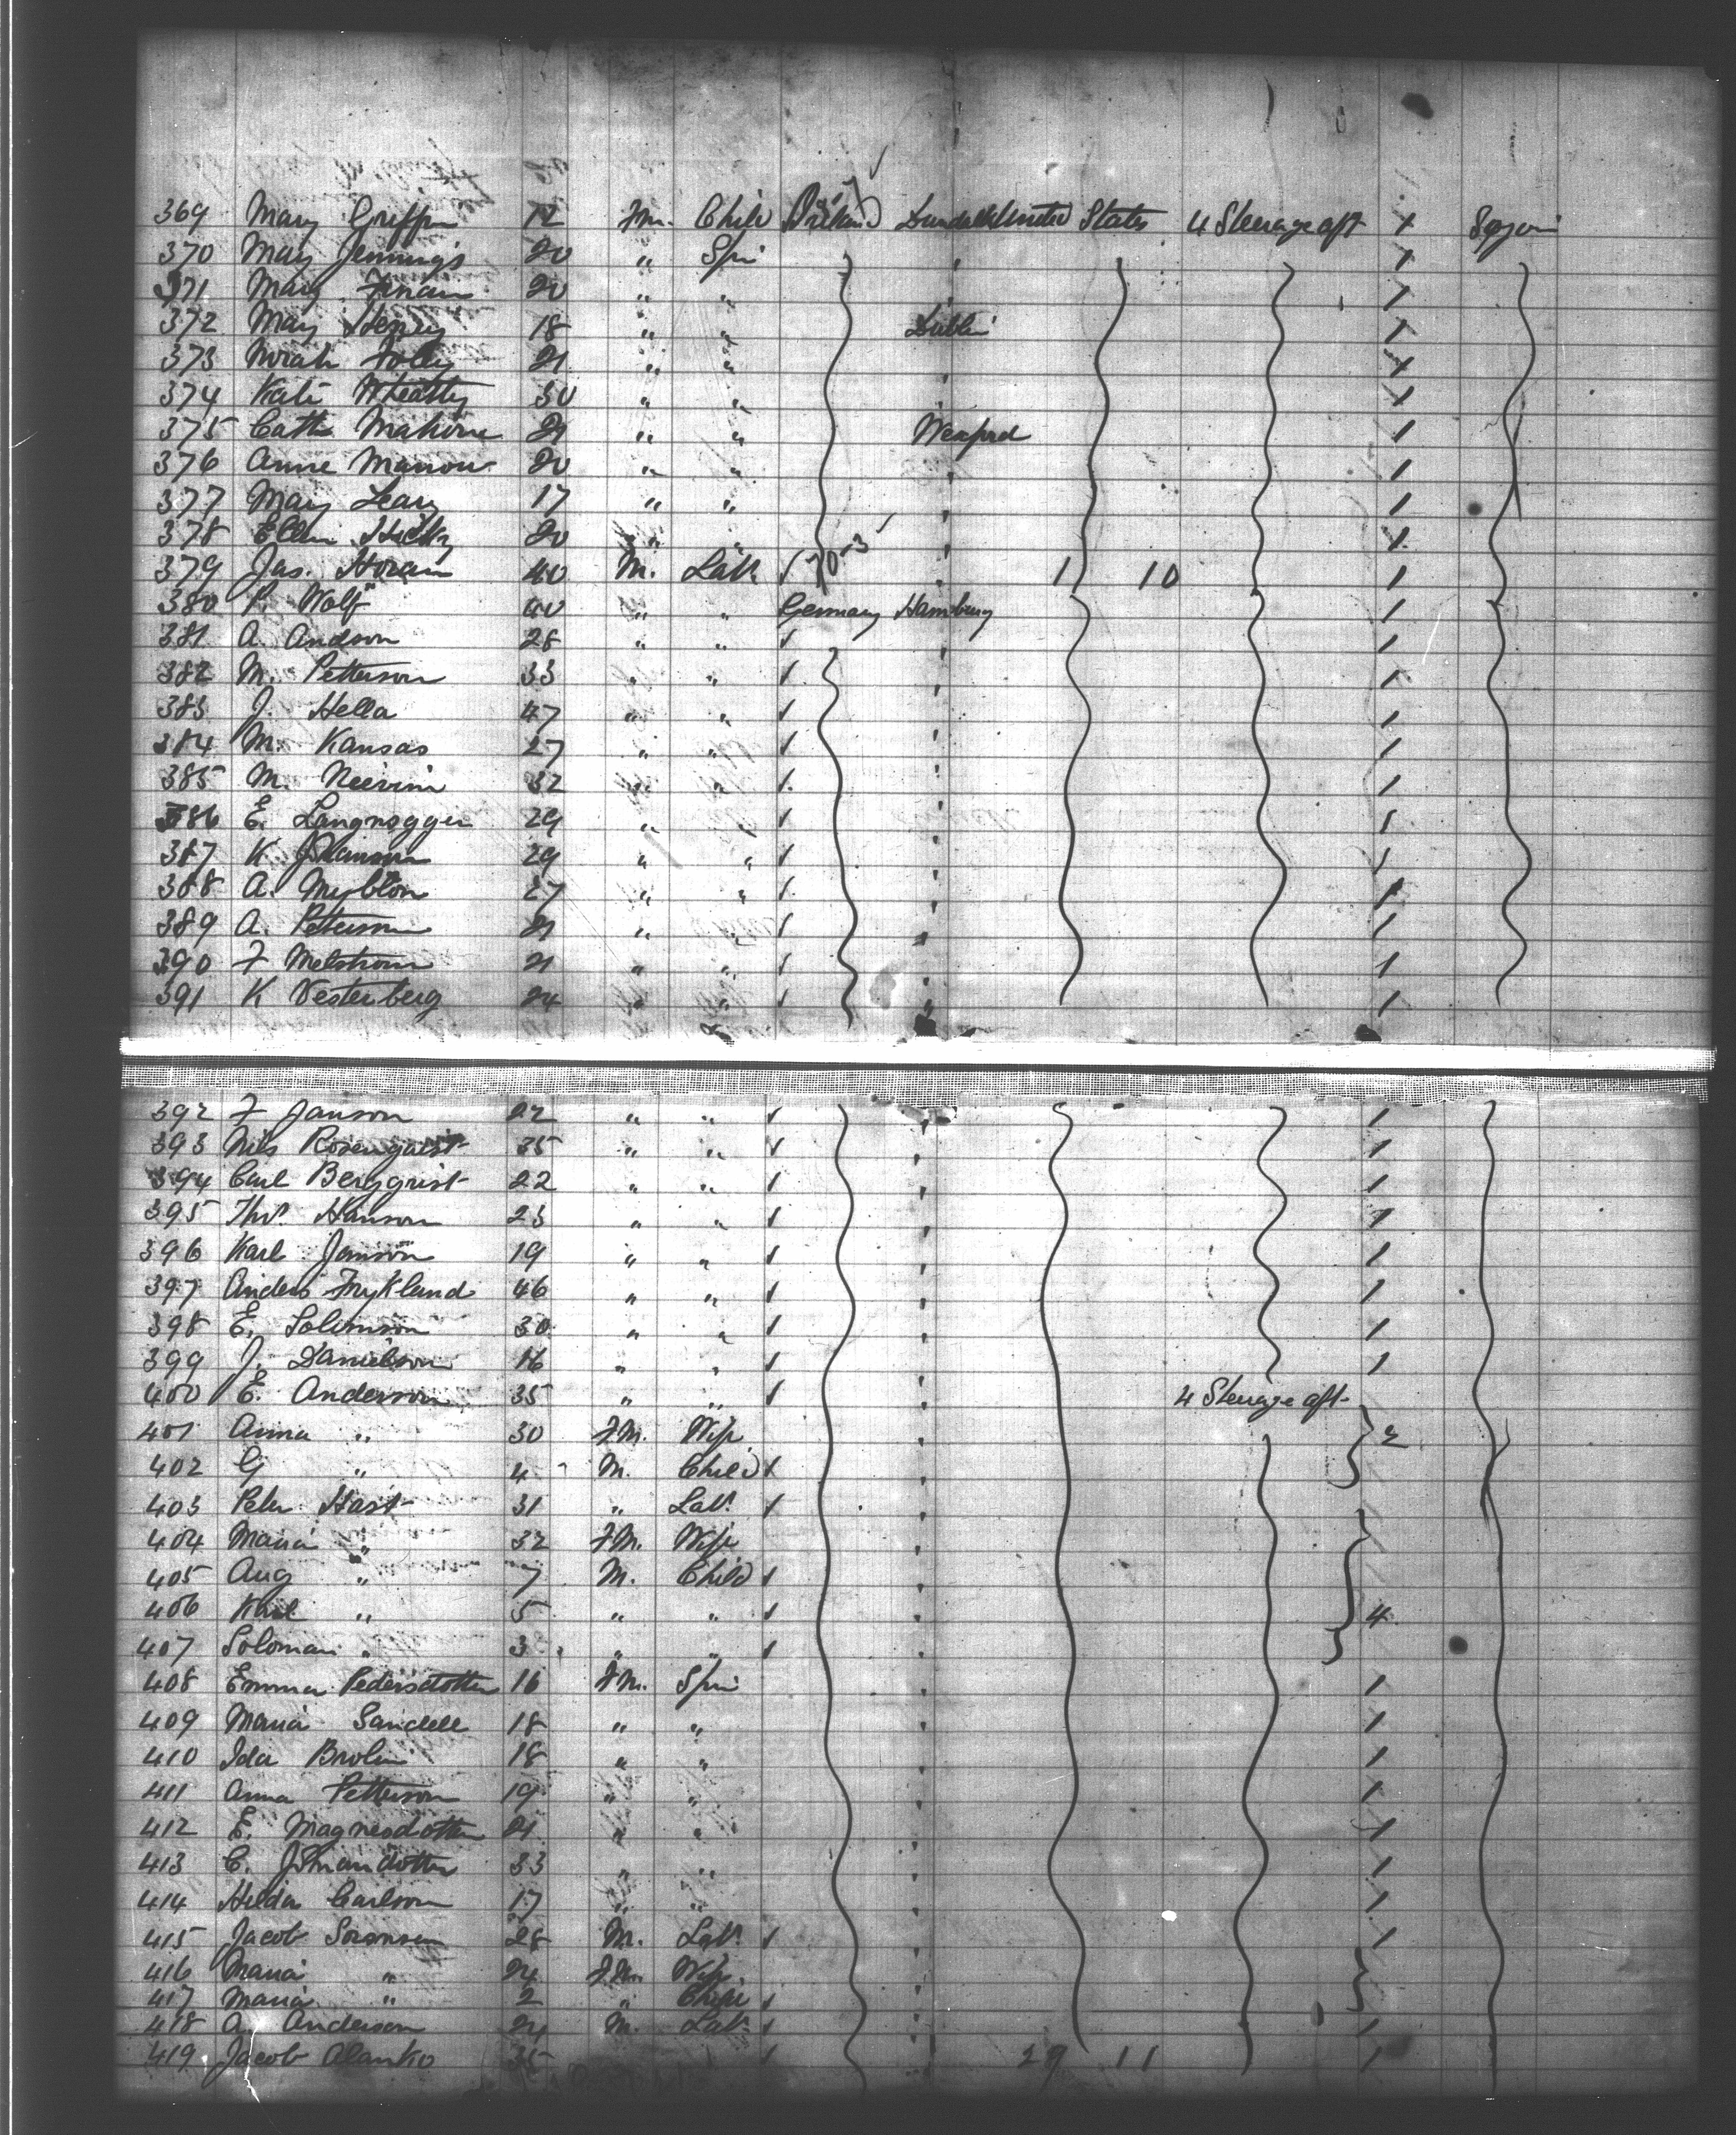 369 Mary Griffin 12 Fm. Child Ireland Dundalk United States 4 Steerage aft 1 Sojour
370 Mary Jennings 20 " Spin 1
371 Mary 20 " " 1
372 Mary Henry 18 " " Dublin 1
373 Norah Folley 21 " " 1
374 Kate Wheatty 30 " " 1
375 Cath Mahone 29 " " Wexford 1
376 Anne Marrow 20 " " 1
377 Mary Leary 17 " " 1
378 Ellen Hickey 20 " " 1
379 Jas. Horan 40 M. Labr 1 10 1
380 P. Wolf 40 " " Germany Hamburg 1
381 A. Andson 28 " " 1
382 M. Petterson 33 " " 1
383 J. Hella 47 " " 1
384 M. Kansas 27 " " 1
385 M. Neivini 32 " " 1
386 E. Langnogger 29 " " 1
387 K Johanson 29 " " 1
388 A. Mybton 27 " " 1
389 A. Petterson 21 " " 1
390 F Melstrom 21 " " 1
391 K Vesterberg 24 " " 1
392 F Janson 22 " " 1
393 Nils Rosenquist 35 " " 1
394 Carl Bergqrist 22 " " 1
395 Thos. Hanson 23 " " 1
396 Karl Janson 19 " " 1
397 Anders Frykland 46 " " 1
398 E. Solomson 30 " " 1
399 J. Danielson 16 " " 1
400 E. Anderson 35 " " 4 Steerage aft
401 Anna " 30 Fm. Wife 2
402 G " 4 M. Child
403 Peter Hast 31 " Labr
404 Maria " 32 Fm. Wife
405 Aug " 7 M. Child
406 Karl " 5 " " 4
407 Soloman " 3 " "
408 Emma Pedersdotter 16 Fm. Spin 1
409 Maria Sandell 18 " " 1
410 Ida Brolin 18 " " 1
411 Anna Petterson 19 " " 1
412 E. Magnesdotter 21 " " 1
413 C. Johnandotter 33 " " 1
414 Hilda Carlson 17 " " 1
415 Jacob Soronsen 28 M. Labr 1
416 Maria " 24 Fm. Wife
417 Maria " 2 " Child
418 A. Anderson 24 M. Labr 1
419 Jacob Alanko 35 29 11 1